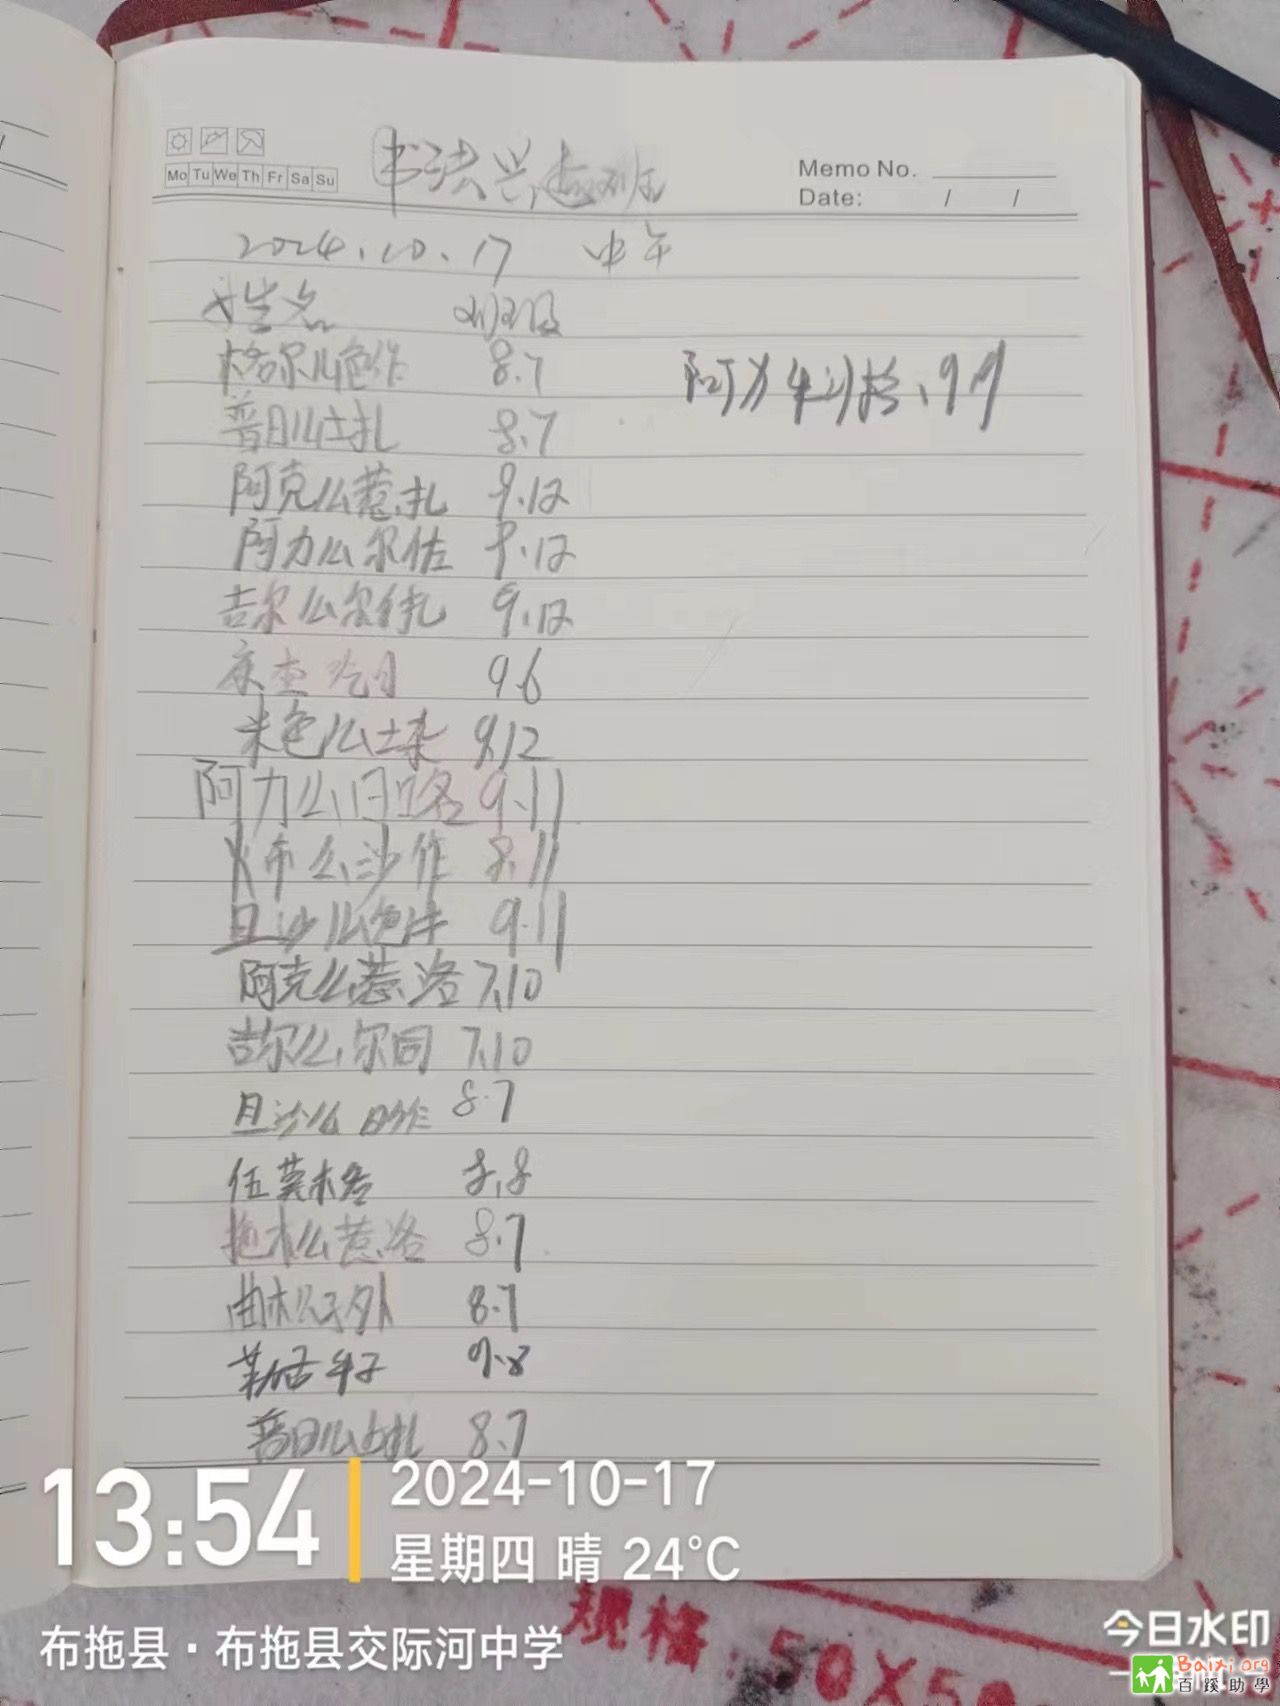 Mo Tu We Th Fr Sa Su
书法兴趣班
Memo No.
Date: / /
2024.10.17 中午
姓名 班级
格尔么色作 8.7
普日么士扎 8.7
阿力 9.9
阿克么惹扎 9.12
阿力么尔佑 9.12
吉尔么尔扎 9.12
9.6
米色么土杂 9.12
阿力么日各 9.11
布么沙作 8.11
且沙么色牛 9.11
阿克么惹洛 7.10
吉尔么尔同 7.10
且沙么日作 8.7
伍莫木各 8.8
拖木么惹洛 8.7
曲木 外 8.7
9.8
普日么 扎 8.7
13:54
2024-10-17
星期四 晴 24℃
布拖县·布拖县交际河中学
规格:50X5
今日水印
Baixi.org
百蹊助學